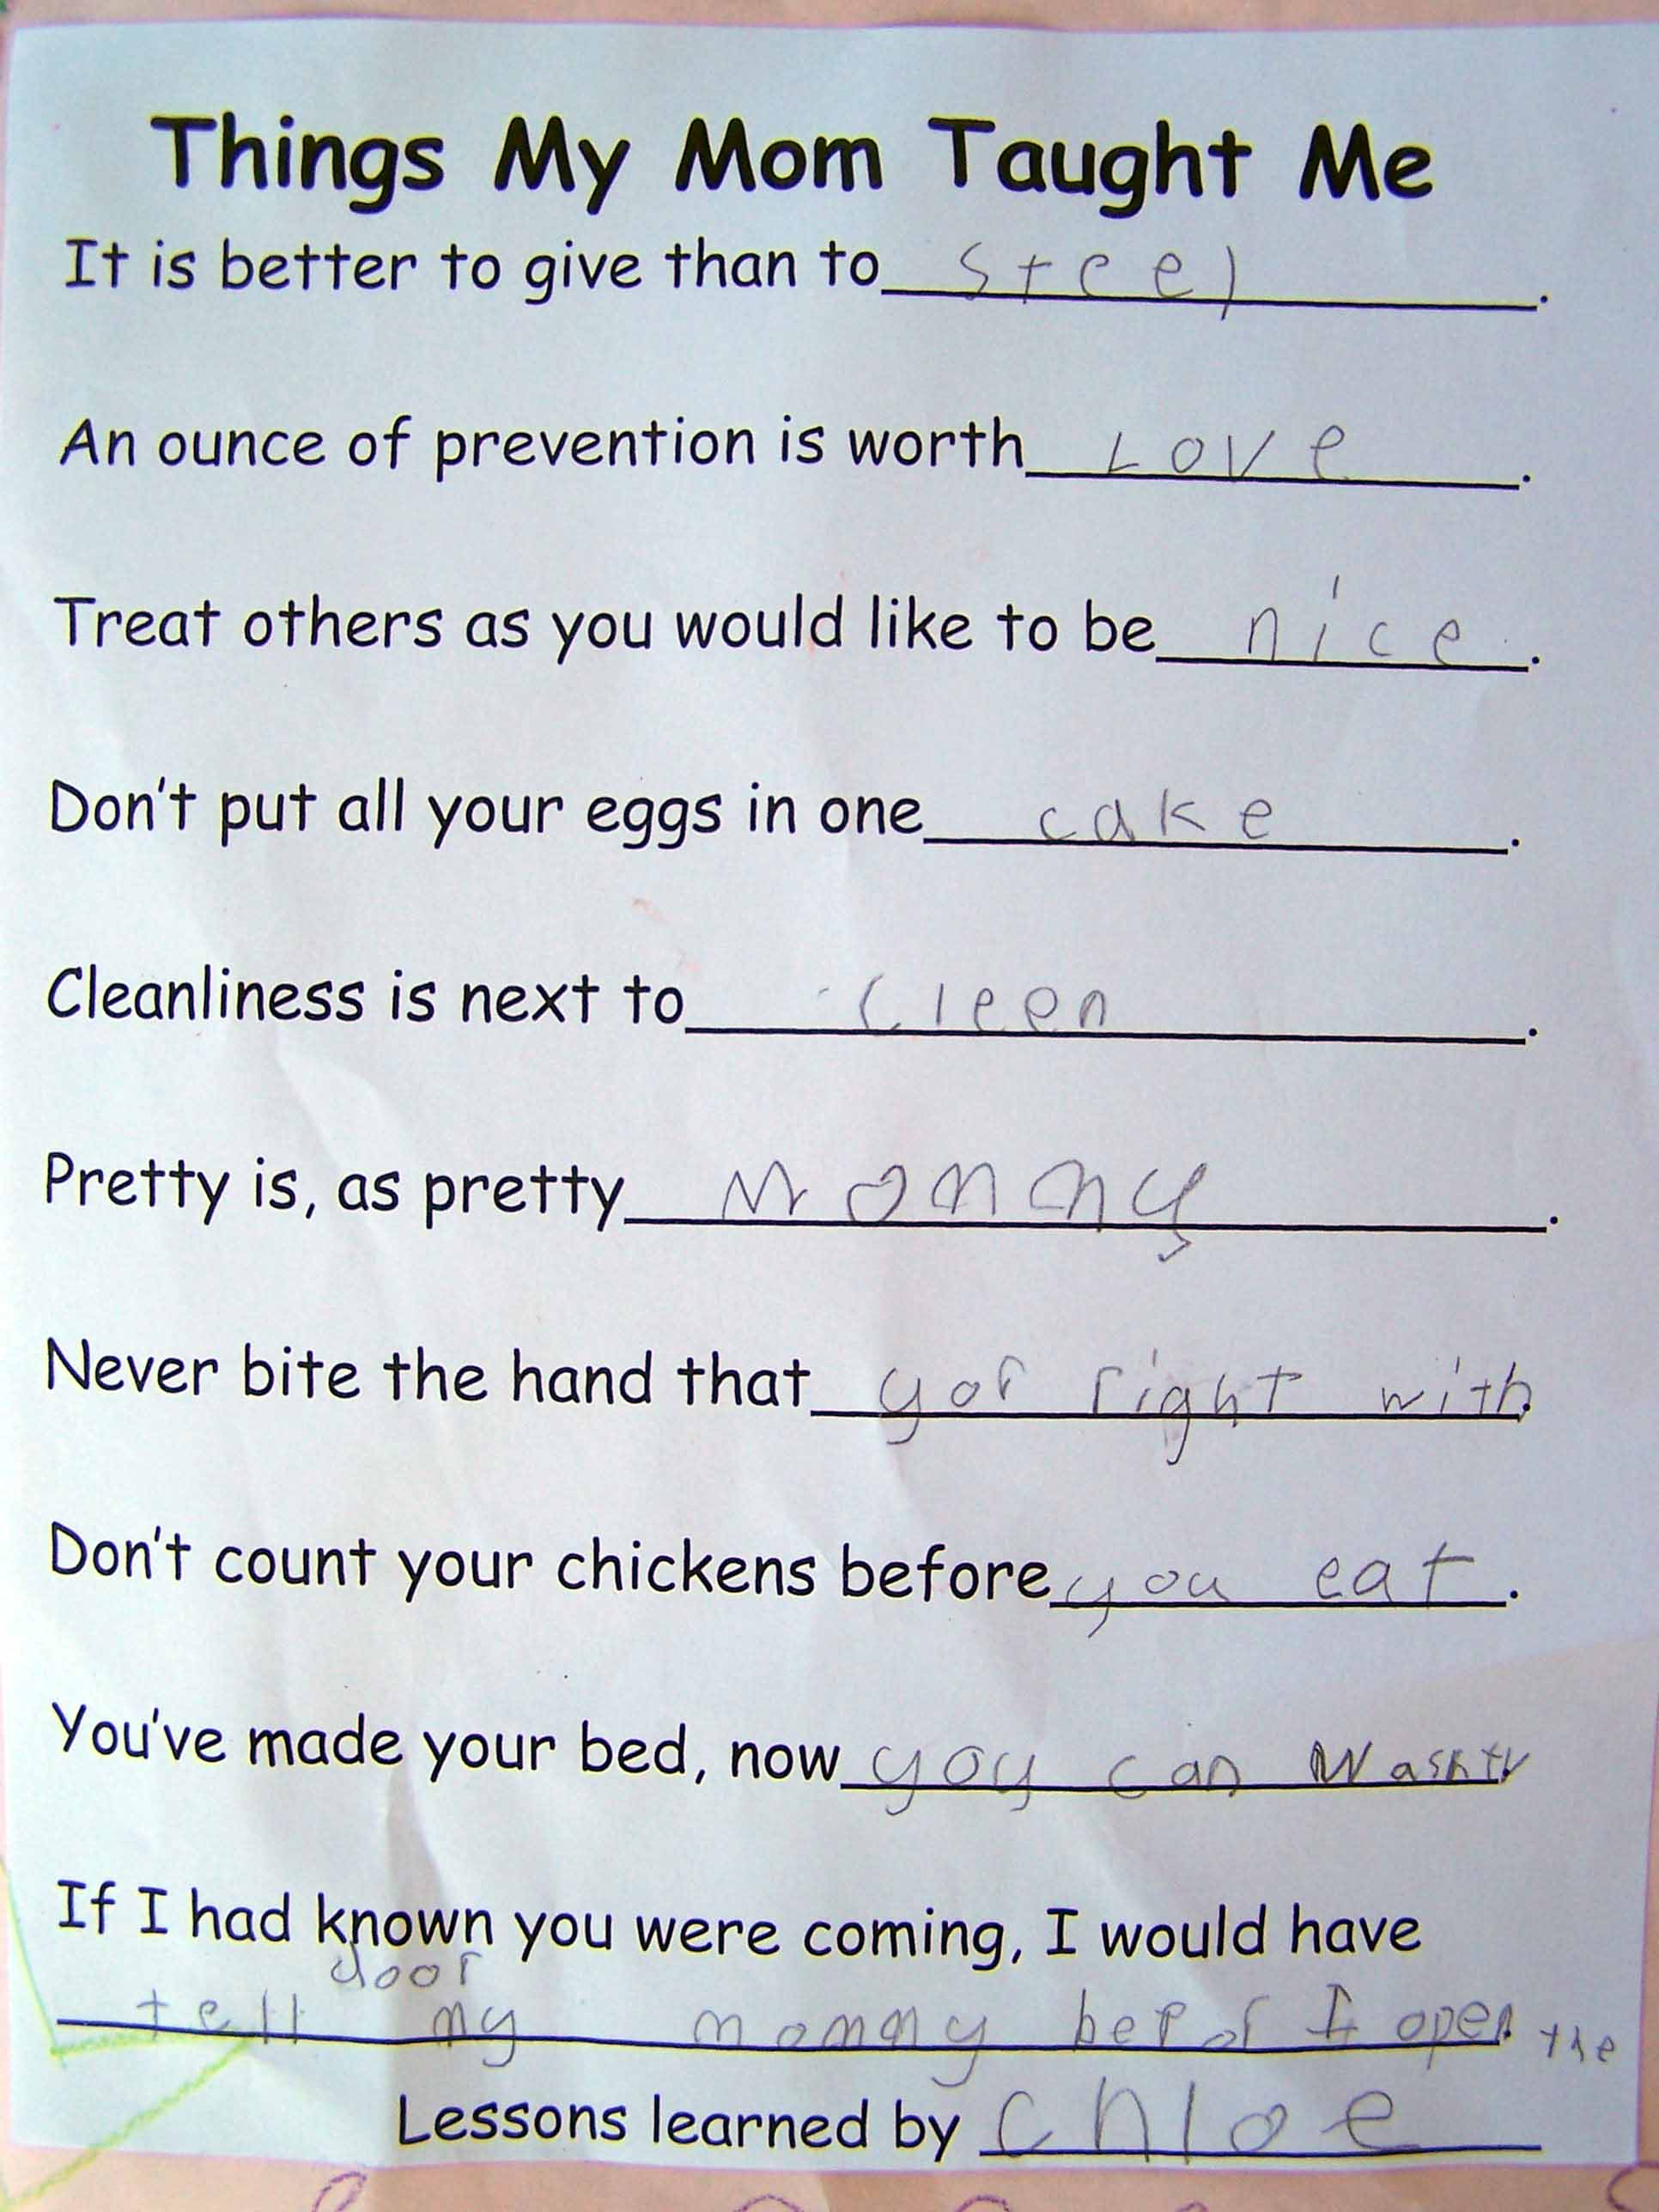 Things My Mom Taught Me
It is better to give than to steel.
An ounce of prevention is worth Love.
Treat others as you would like to be nice.
Don't put all your eggs in one cake.
Cleanliness is next to Cleen.
Pretty is, as pretty mommy.
Never bite the hand that yor right with.
Don't count your chickens before you eat.
You've made your bed, now you can wash tv
If I had known you were coming, I would have
door
tell my mommy befor I open the
Lessons learned by Chloe